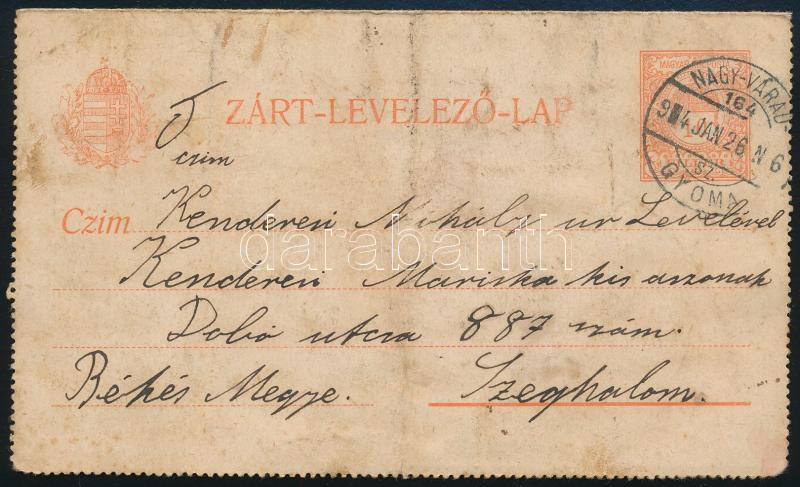 MAGYAR
NAGY-VÁRAD-
164
914 JAN 26 N 6
SZ.
GYOMA
ZÁRT-LEVELEZŐ-LAP
T
czim
Czim Kenderesi Mihály ur Levelével
Kenderesi Mariska kis aszonak
Dobó utcza 887 szám.
Békés Megye. Szeghalom.
darabanth